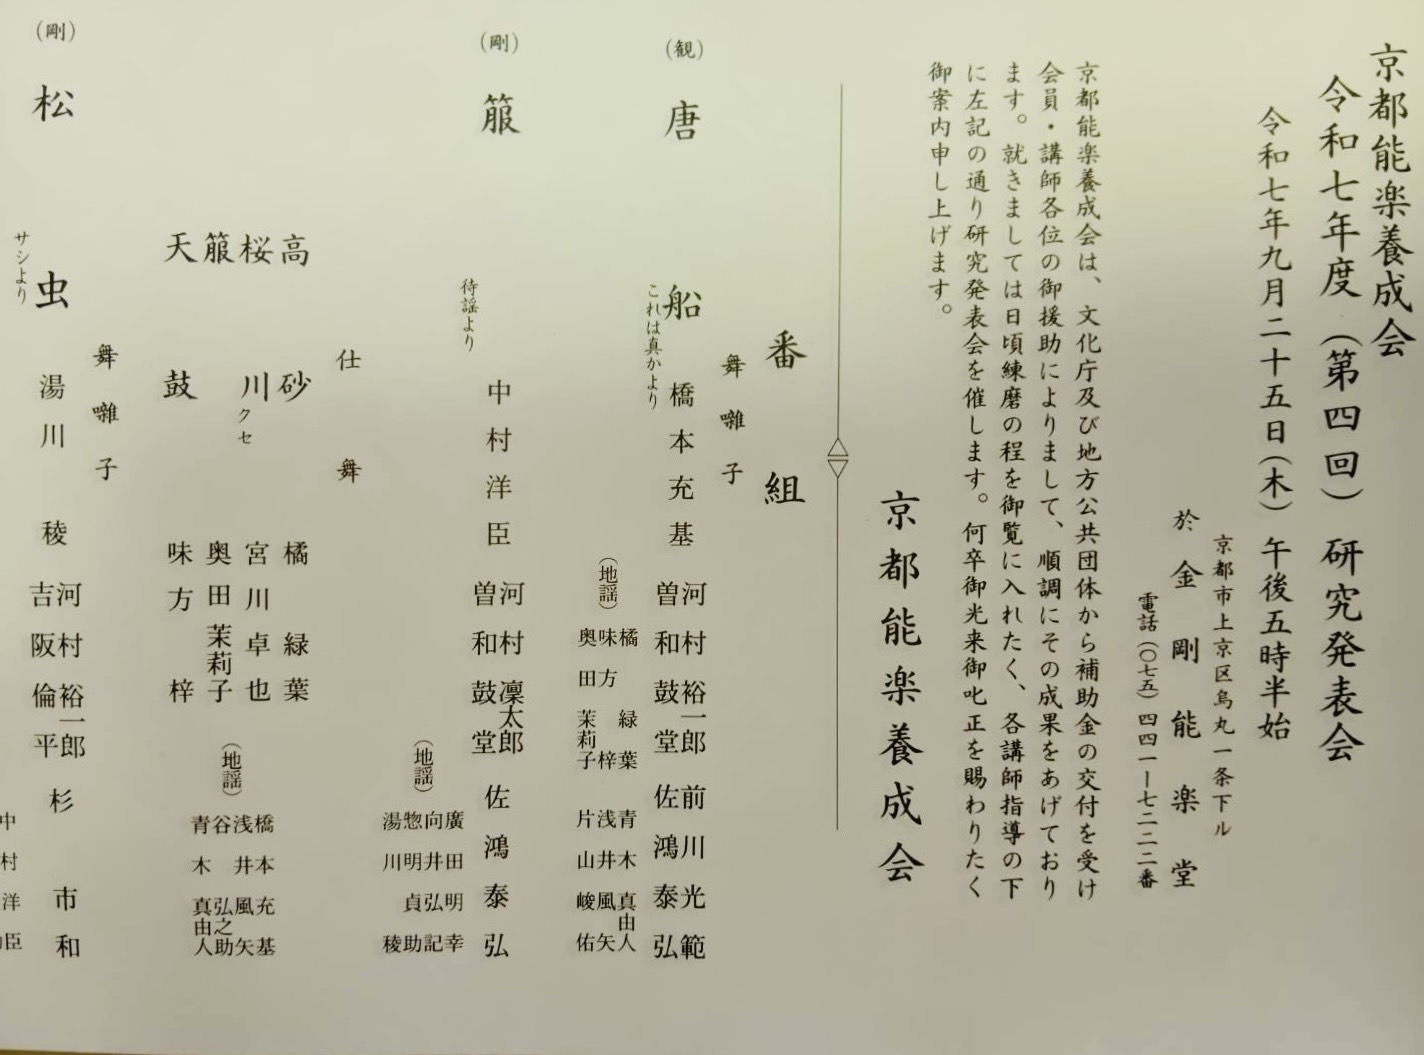 京都能楽養成会
令和七年度（第四回）研究発表会
令和七年九月二十五日（木）午後五時半始
京都市上京区烏丸一条下ル
於 金剛能楽堂
電話（〇七五）四四一ー七二二二番
京都能楽養成会は、文化庁及び地方公共団体から補助金の交付を受け
会員・講師各位の御援助によりまして、順調にその成果をあげており
ます。就きましては日頃練磨の程を御覧に入れたく、各講師指導の下
に左記の通り研究発表会を催します。何卒御光来御叱正を賜わりたく
御案内申し上げます。
京都能楽養成会
番組
舞囃子
（観）唐船 橋本充基
これは真かより
河村裕一郎 前川光範
曽和鼓堂 佐鴻泰弘
（地謡）
橘緑葉 青木真由人
味方梓 浅井風矢
奥田茉莉子 片山峻佑
（剛）箙 中村洋臣
待謡より
河村凜太郎
曽和鼓堂 佐鴻泰弘
（地謡）
廣田明幸
向井弘記
惣明貞助
湯川稜
仕舞
高砂 橘緑葉
桜川クセ 宮川卓也
箙 奥田茉莉子
天鼓 味方梓
（地謡）
橋本充基
浅井風矢
谷弘之助
青木真由人
舞囃子
（剛）松虫 湯川稜
サシより
河村裕一郎
吉阪倫平 杉市和
中村洋臣